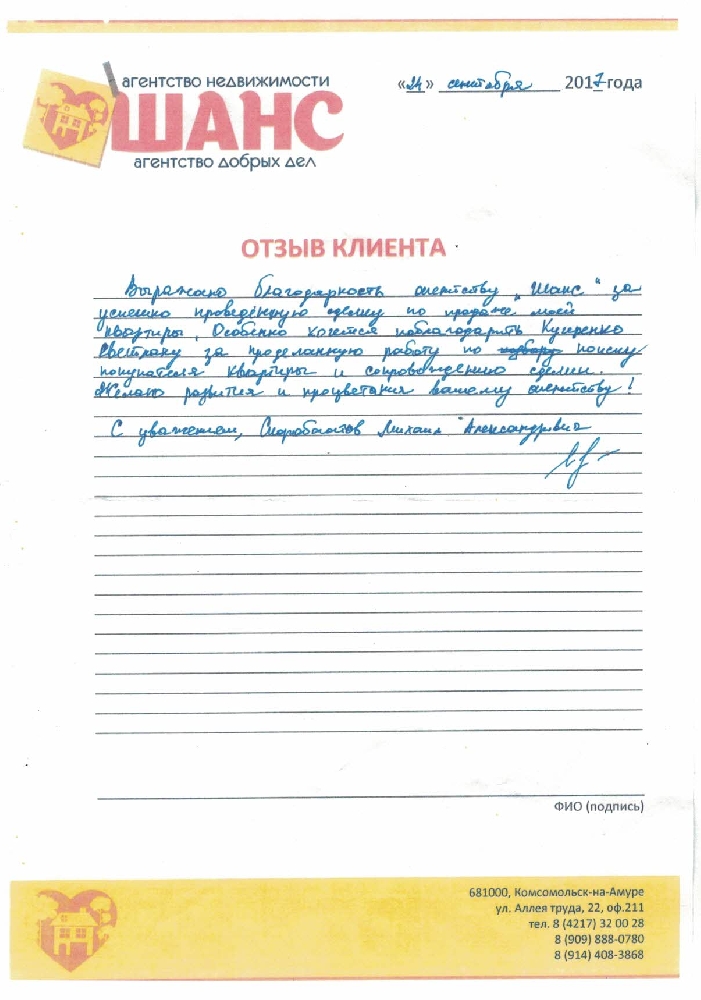 агентство недвижимости
ШАНС
агентство добрых дел
«24» сентября 2017 года
ОТЗЫВ КЛИЕНТА
Выражаю благодарность агентству "Шанс" за
успешно проведённую сделку по продаже моей
квартиры. Особенно хочется поблагодарить
Светлану за проделанную работу по поиску
покупателя квартиры и сопровождению сделки.
Желаю развития и процветания вашему агентству!
С уважением, Михаил Александрович
ФИО (подпись)
681000, Комсомольск-на-Амуре
ул. Аллея труда, 22, оф.211
тел. 8 (4217) 32 00 28
8 (909) 888-0780
8 (914) 408-3868